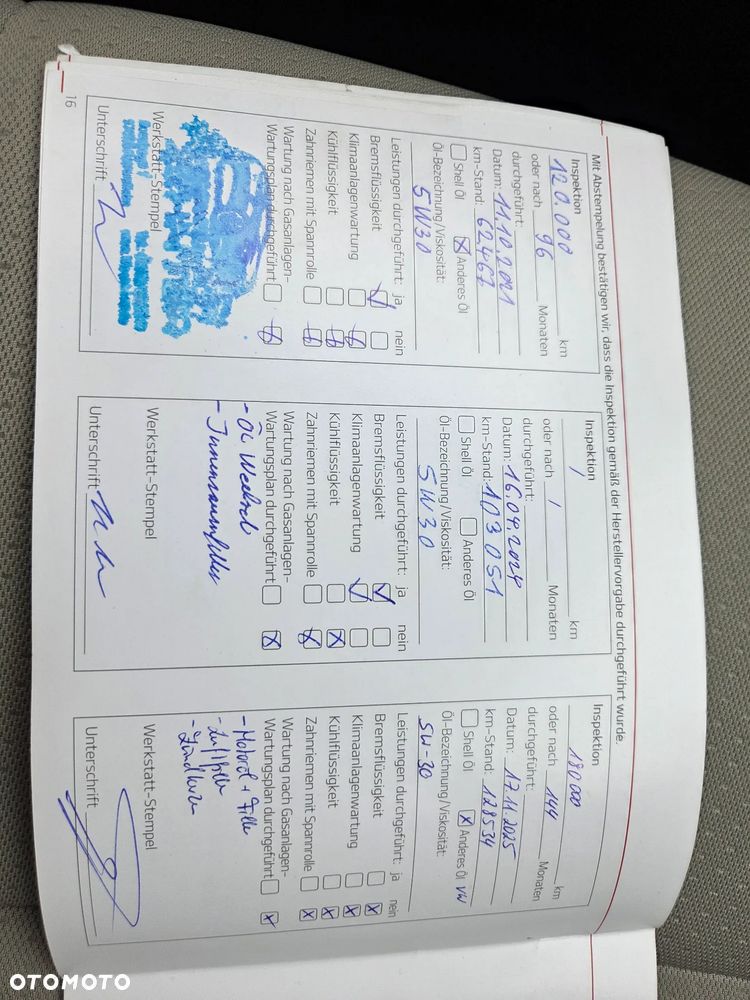 Mit Abstempelung bestätigen wir, dass die Inspektion gemäß der Herstellervorgabe durchgeführt wurde.
Inspektion
120.000 km
oder nach 96 Monaten
durchgeführt:
Datum: 11.10.2021
km-Stand: 62.467
Shell Öl Anderes Öl
Öl-Bezeichnung/Viskosität:
5W30
Leistungen durchgeführt: ja nein
Bremsflüssigkeit
Klimaanlagenwartung
Kühlflüssigkeit
Zahnriemen mit Spannrolle
Wartung nach Gasanlagen-
Wartungsplan durchgeführt
Werkstatt-Stempel
Unterschrift:
16
Inspektion
/ km
oder nach / Monaten
durchgeführt:
Datum: 16.04.2024
km-Stand: 103051
Shell Öl Anderes Öl
Öl-Bezeichnung/Viskosität:
5W30
Leistungen durchgeführt: ja nein
Bremsflüssigkeit
Klimaanlagenwartung
Kühlflüssigkeit
Zahnriemen mit Spannrolle
Wartung nach Gasanlagen-
Wartungsplan durchgeführt
- Öl Wechsel
Werkstatt-Stempel
Unterschrift:
Inspektion
180 000 km
oder nach 144 Monaten
durchgeführt:
Datum: 17.11.2025
km-Stand: 128534
Shell Öl Anderes Öl VW
Öl-Bezeichnung/Viskosität:
5W-30
Leistungen durchgeführt: ja nein
Bremsflüssigkeit
Klimaanlagenwartung
Kühlflüssigkeit
Zahnriemen mit Spannrolle
Wartung nach Gasanlagen-
Wartungsplan durchgeführt
- Motoröl + Filter
- Luftfilter
- Zündkerzen
Werkstatt-Stempel
Unterschrift:
OTOMOTO